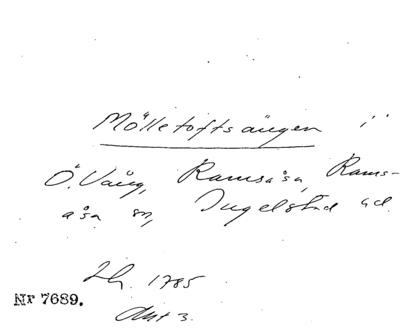 Mölletoftsängen i
Ö. Vång, Ramsåsa, Rams-
åsa sn, Ingelstad hd.
Sk. 1785
Akt 3.
Nr 7689.